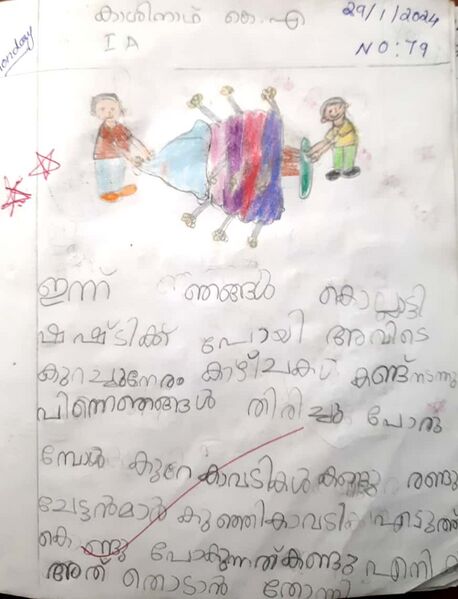 Monday
കാശിനാഥ് കെ.എ
29/1/2024
I A
NO:79
ഇന്ന് ഞങ്ങൾ കൊല്ലാട്ടി
ഷഷ്ടിക്ക് പോയി അവിടെ
കുറച്ചുനേരം കാഴ്ചകൾ കണ്ട്നടന്നു
പിന്നെഞങ്ങൾ തിരിച്ചു പോരു
മ്പോൾ കുറേ കാവടികൾ കണ്ടു രണ്ടു
ചേട്ടൻമാർ കുഞ്ഞികാവടി എടുത്ത്
കൊണ്ടു പോകുന്നത്കണ്ടു എനി
അത് തൊടാൻ തോന്നി